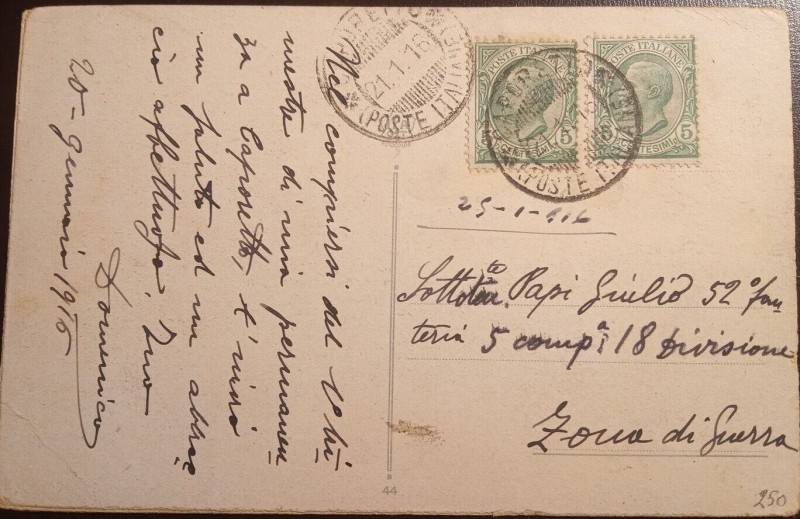 Nel compiersi del 1° tri
mestre di mia permanen
za a Caporetto, t'invio
un saluto ed un abbrac
cio affettuoso. Tuo
Domenico
20-gennaio 1916
CAPORETTO (UDINE)
21.1.16
(POSTE ITALIANE)
POSTE ITALIANE
5
CENTESIMI
POSTE ITALIANE
5 5
CENTESIMI
(POSTE ITALIANE)
25-1-916
Sottote. Papi Giulio 52° fan
teria 5 compa. 18 Divisione
Zona di Guerra
44
250